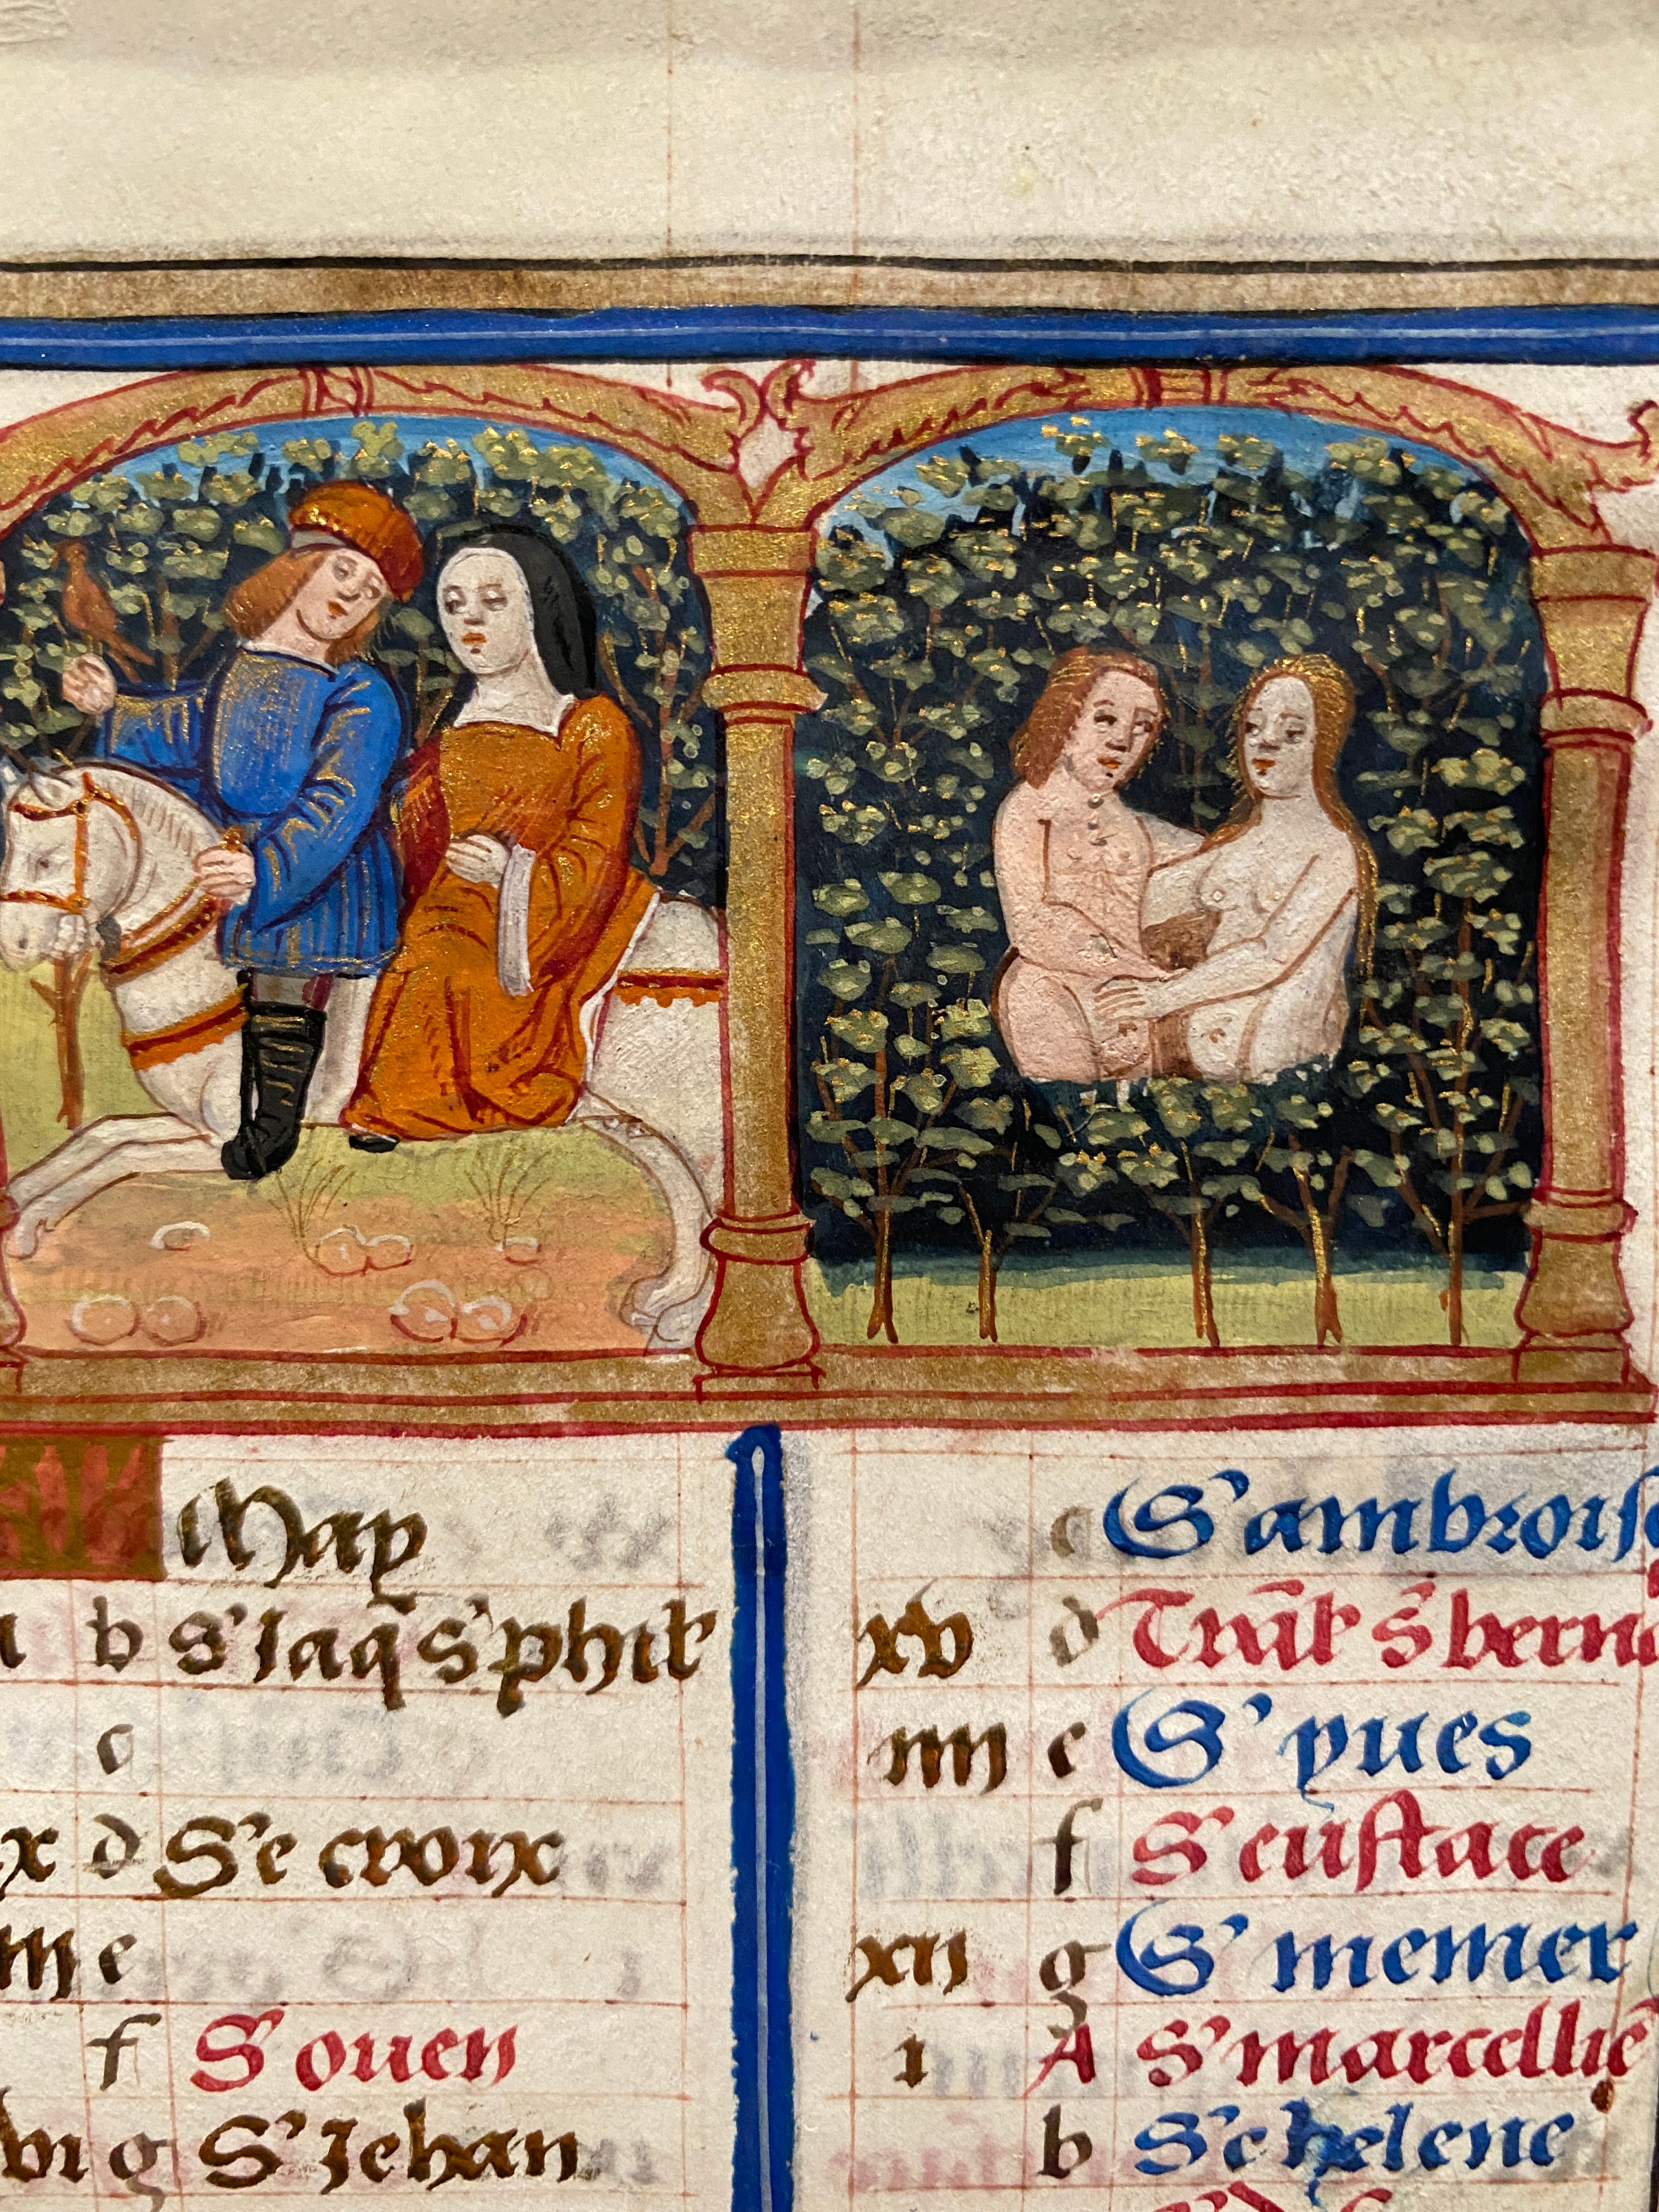 May
b S' Jaq S' phil
c
x d Se croix
e
f S' ouen
vi g S' Jehan
c S' ambrois
xv d Trāsl S bern
iiii e S' yues
f S' eustace
xii g S' memer
i A S' marcelliē
b Se helene